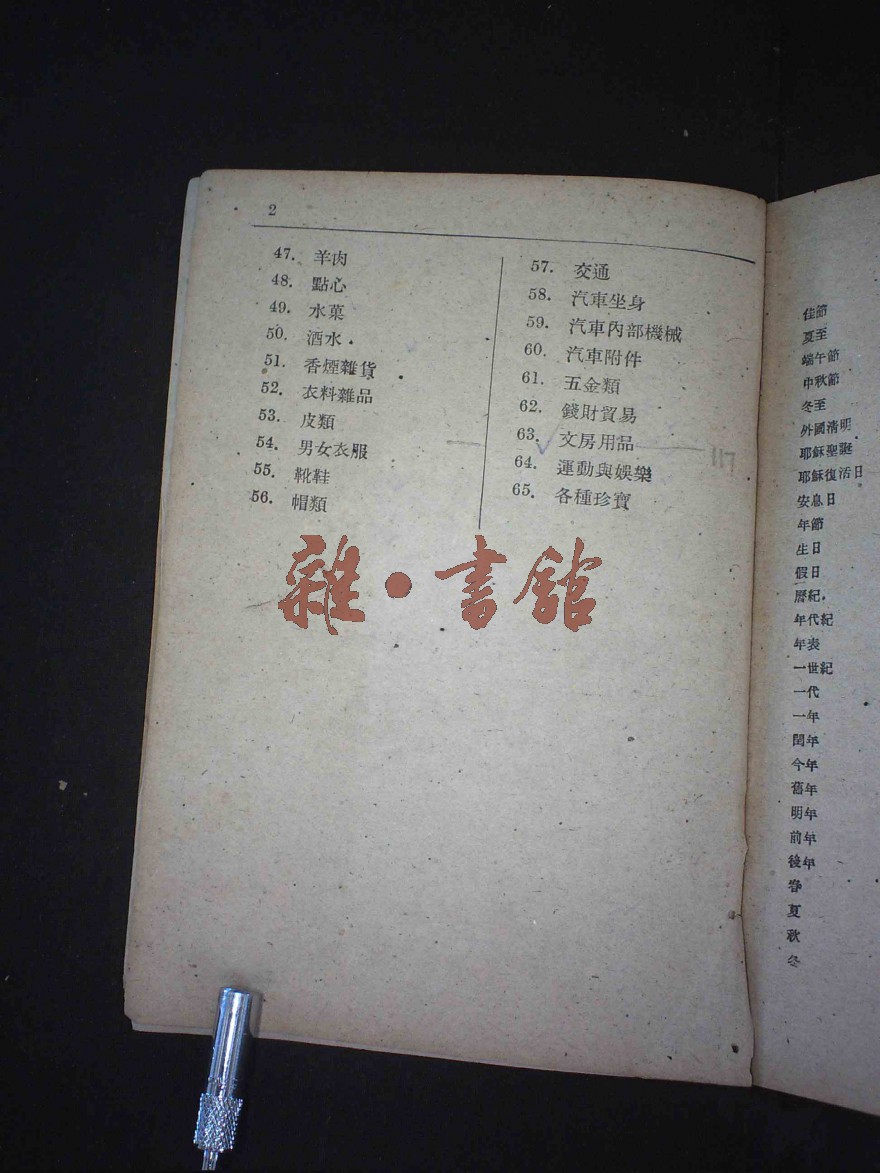 2
47. 羊肉
48. 點心
49. 水菓
50. 酒水.
51. 香煙雜貨
52. 衣料雜品
53. 皮類
54. 男女衣服
55. 靴鞋
56. 帽類
57. 交通
58. 汽車坐身
59. 汽車內部機械
60. 汽車附件
61. 五金類
62. 錢財貿易
63. 文房用品
64. 運動與娛樂
65. 各種珍寶
117
雜•書館
佳節
夏至
端午節
中秋節
冬至
外國清明
耶穌聖誕
耶穌復活日
安息日
年節
生日
假日
曆紀.
年代紀
年表
一世紀
一代
一年
閏年
今年
舊年
明年
前年
後年
春
夏
秋
冬